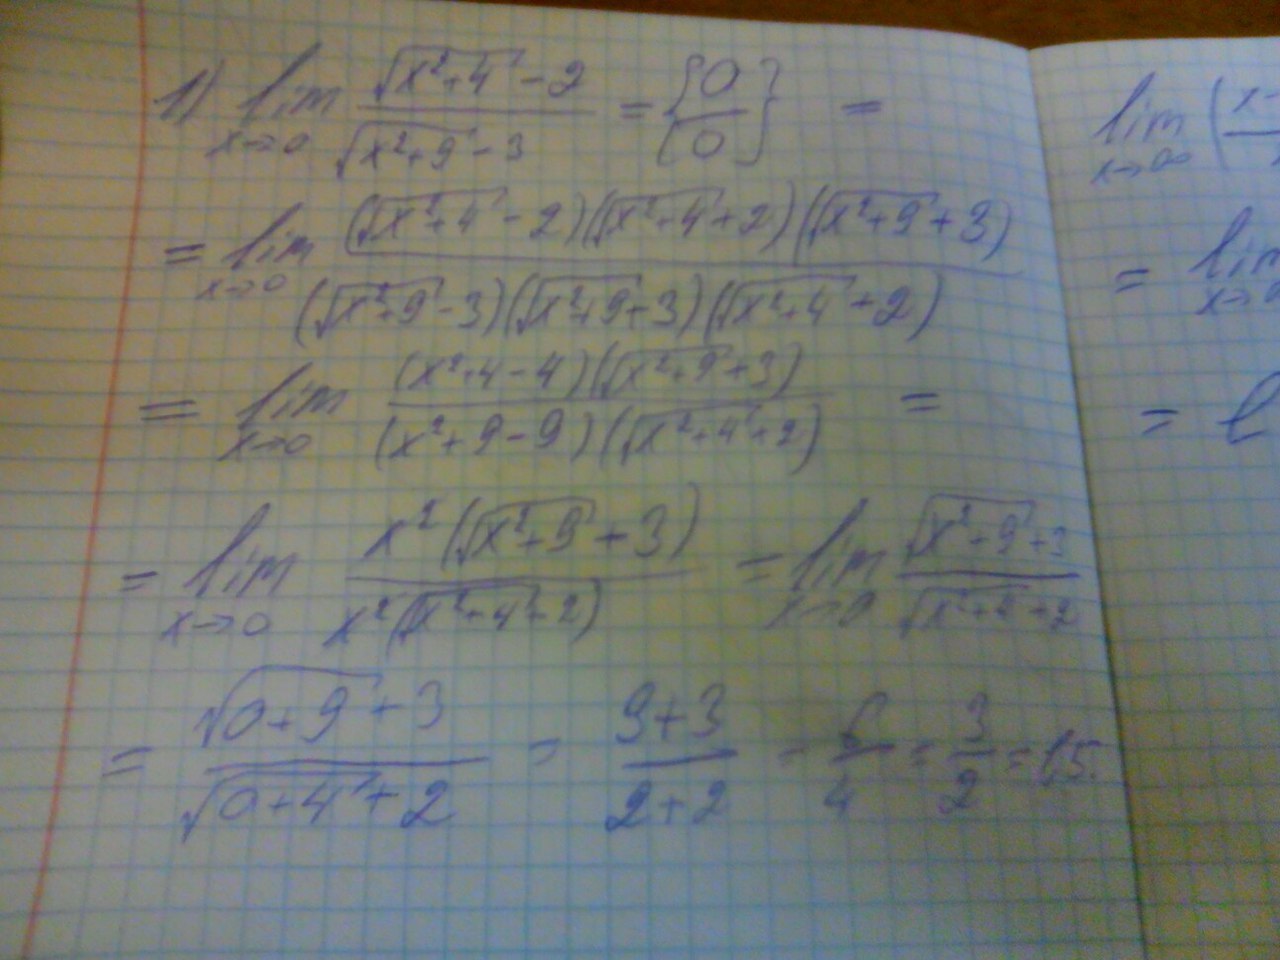 1) lim x→0 (√(x²+4) - 2)/(√(x²+9) - 3) = {0/0} =
= lim x→0 ((√(x²+4) - 2)(√(x²+4) + 2)(√(x²+9) + 3))/((√(x²+9) - 3)(√(x²+9) + 3)(√(x²+4) + 2))
= lim x→0 ((x²+4-4)(√(x²+9) + 3))/((x²+9-9)(√(x²+4) + 2)) =
= lim x→0 (x²(√(x²+9) + 3))/(x²(√(x²+4) + 2)) = lim x→0 (√(x²+9) + 3)/(√(x²+4) + 2)
= (√(0+9) + 3)/(√(0+4) + 2) = (3+3)/(2+2) = 6/4 = 3/2 = 1,5.
lim x→∞ (x-
= lim
= l